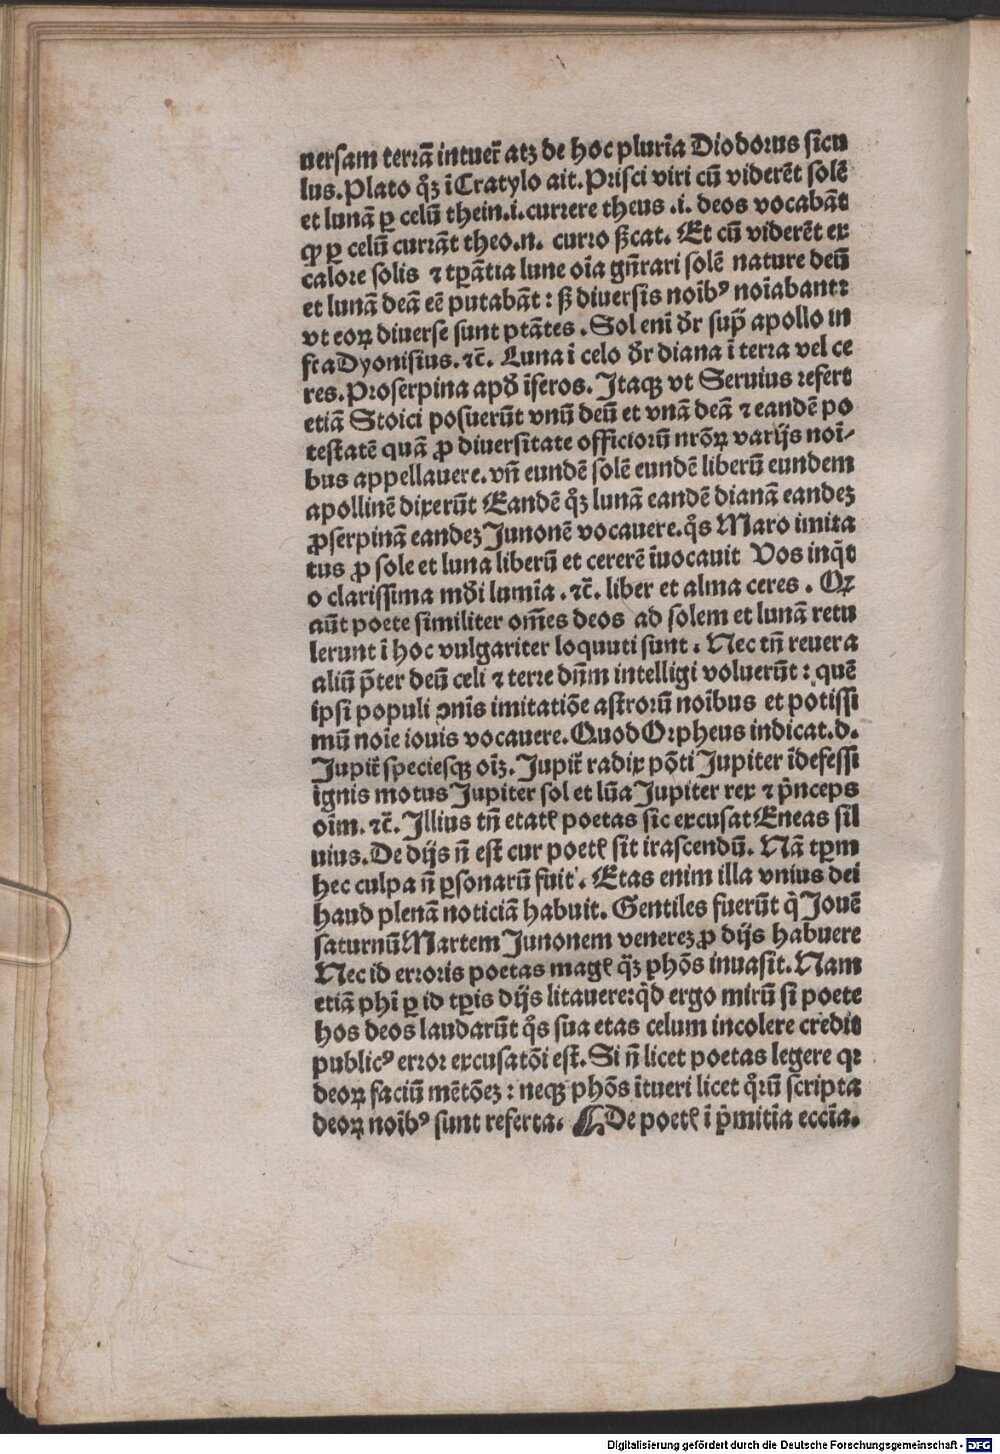 uersam terrā intuer̄ atꝫ de hoc plurīa Diodorus sicu
lus. Plato qͦꝫ ī Cratylo ait. Prisci viri cū viderēt solē
et lunā ꝑ celū thein .i. currere theus .i. deos vocabāt
ꝙ ꝑ celū currāt theo .n. curro ßcat. Et cū viderēt ex
calore solis ⁊ tꝑātia lune oīa gn̄rari solē nature deū
et lunā deā eē putabāt : ß diuersis noībꝰ noīabant:
vt eoꝝ diuerse sunt ptātes . Sol enī dr̄ sup̄ apollo in
fra Dyonisius. ⁊c̄. Luna ī celo dr̄ diana ī terra vel ce
res. Proserpina apd̄ īferos. Itaqꝫ vt Seruius refert
etiā Stoici posuerūt vnū deū et vnā deā ⁊ eandē po
testatē quā ꝓ diuersitate officiorū nrōꝝ varijs noī-
bus appellauere. vn̄ eundē solē eundē liberū eundem
apollinē dixerūt Eandē qͦꝫ lunā eandē dianā eandeꝫ
ꝓserpinā eandeꝫ Junonē vocauere. qͦs Maro imita
tus ꝓ sole et luna liberū et cererē īuocauit Vos inqͥt
o clarissima md̄i lumīa . ⁊c̄. liber et alma ceres . Qꝛ
aūt poete similiter om̄es deos ad solem et lunā retu
lerunt ī hoc vulgariter loquuti sunt . Nec tn̄ reuera
aliū p̄ter deū celi ⁊ terre dn̄m intelligi voluerūt : quē
ipsi populi ꝯnis imitatiōe astrorū noībus et potissi
mū noīe iouis vocauere. Quod Orpheus indicat. d.
Jupit̄ speciesqꝫ oīꝫ. Jupit̄ radix pōti Jupiter īdefessi
ignis motus Jupiter sol et lūa Jupiter rex ⁊ p̄nceps
oīm. ⁊c̄. Illius tn̄ etatꝭ poetas sic excusat Eneas sil
uius. De dijs n̄ est cur poetꝭ sit irascendū. Nā tꝑm
hec culpa n̄ ꝑsonarū fuit . Etas enim illa vnius dei
haud plenā noticiā habuit. Gentiles fuerūt qͥ Jouē
saturnū Martem Junonem venereꝫ ꝓ dijs habuere
Nec id erroris poetas magꝭ qͣꝫ phōs inuasit. Nam
etiā phī ꝑ id tꝑis dijs litauere: qͥd ergo mirū si poete
hos deos laudarūt qͦs sua etas celum incolere credit
publicꝰ error excusatōi est. Si n̄ licet poetas legere qꝛ
deoꝝ faciū mētōeꝫ : neqꝫ phōs ītueri licet qͦrū scripta
deoꝝ noībꝰ sunt referta. ¶ De poetꝭ ī p̄mitīa eccīa.
Digitalisierung gefördert durch die Deutsche Forschungsgemeinschaft - DFG